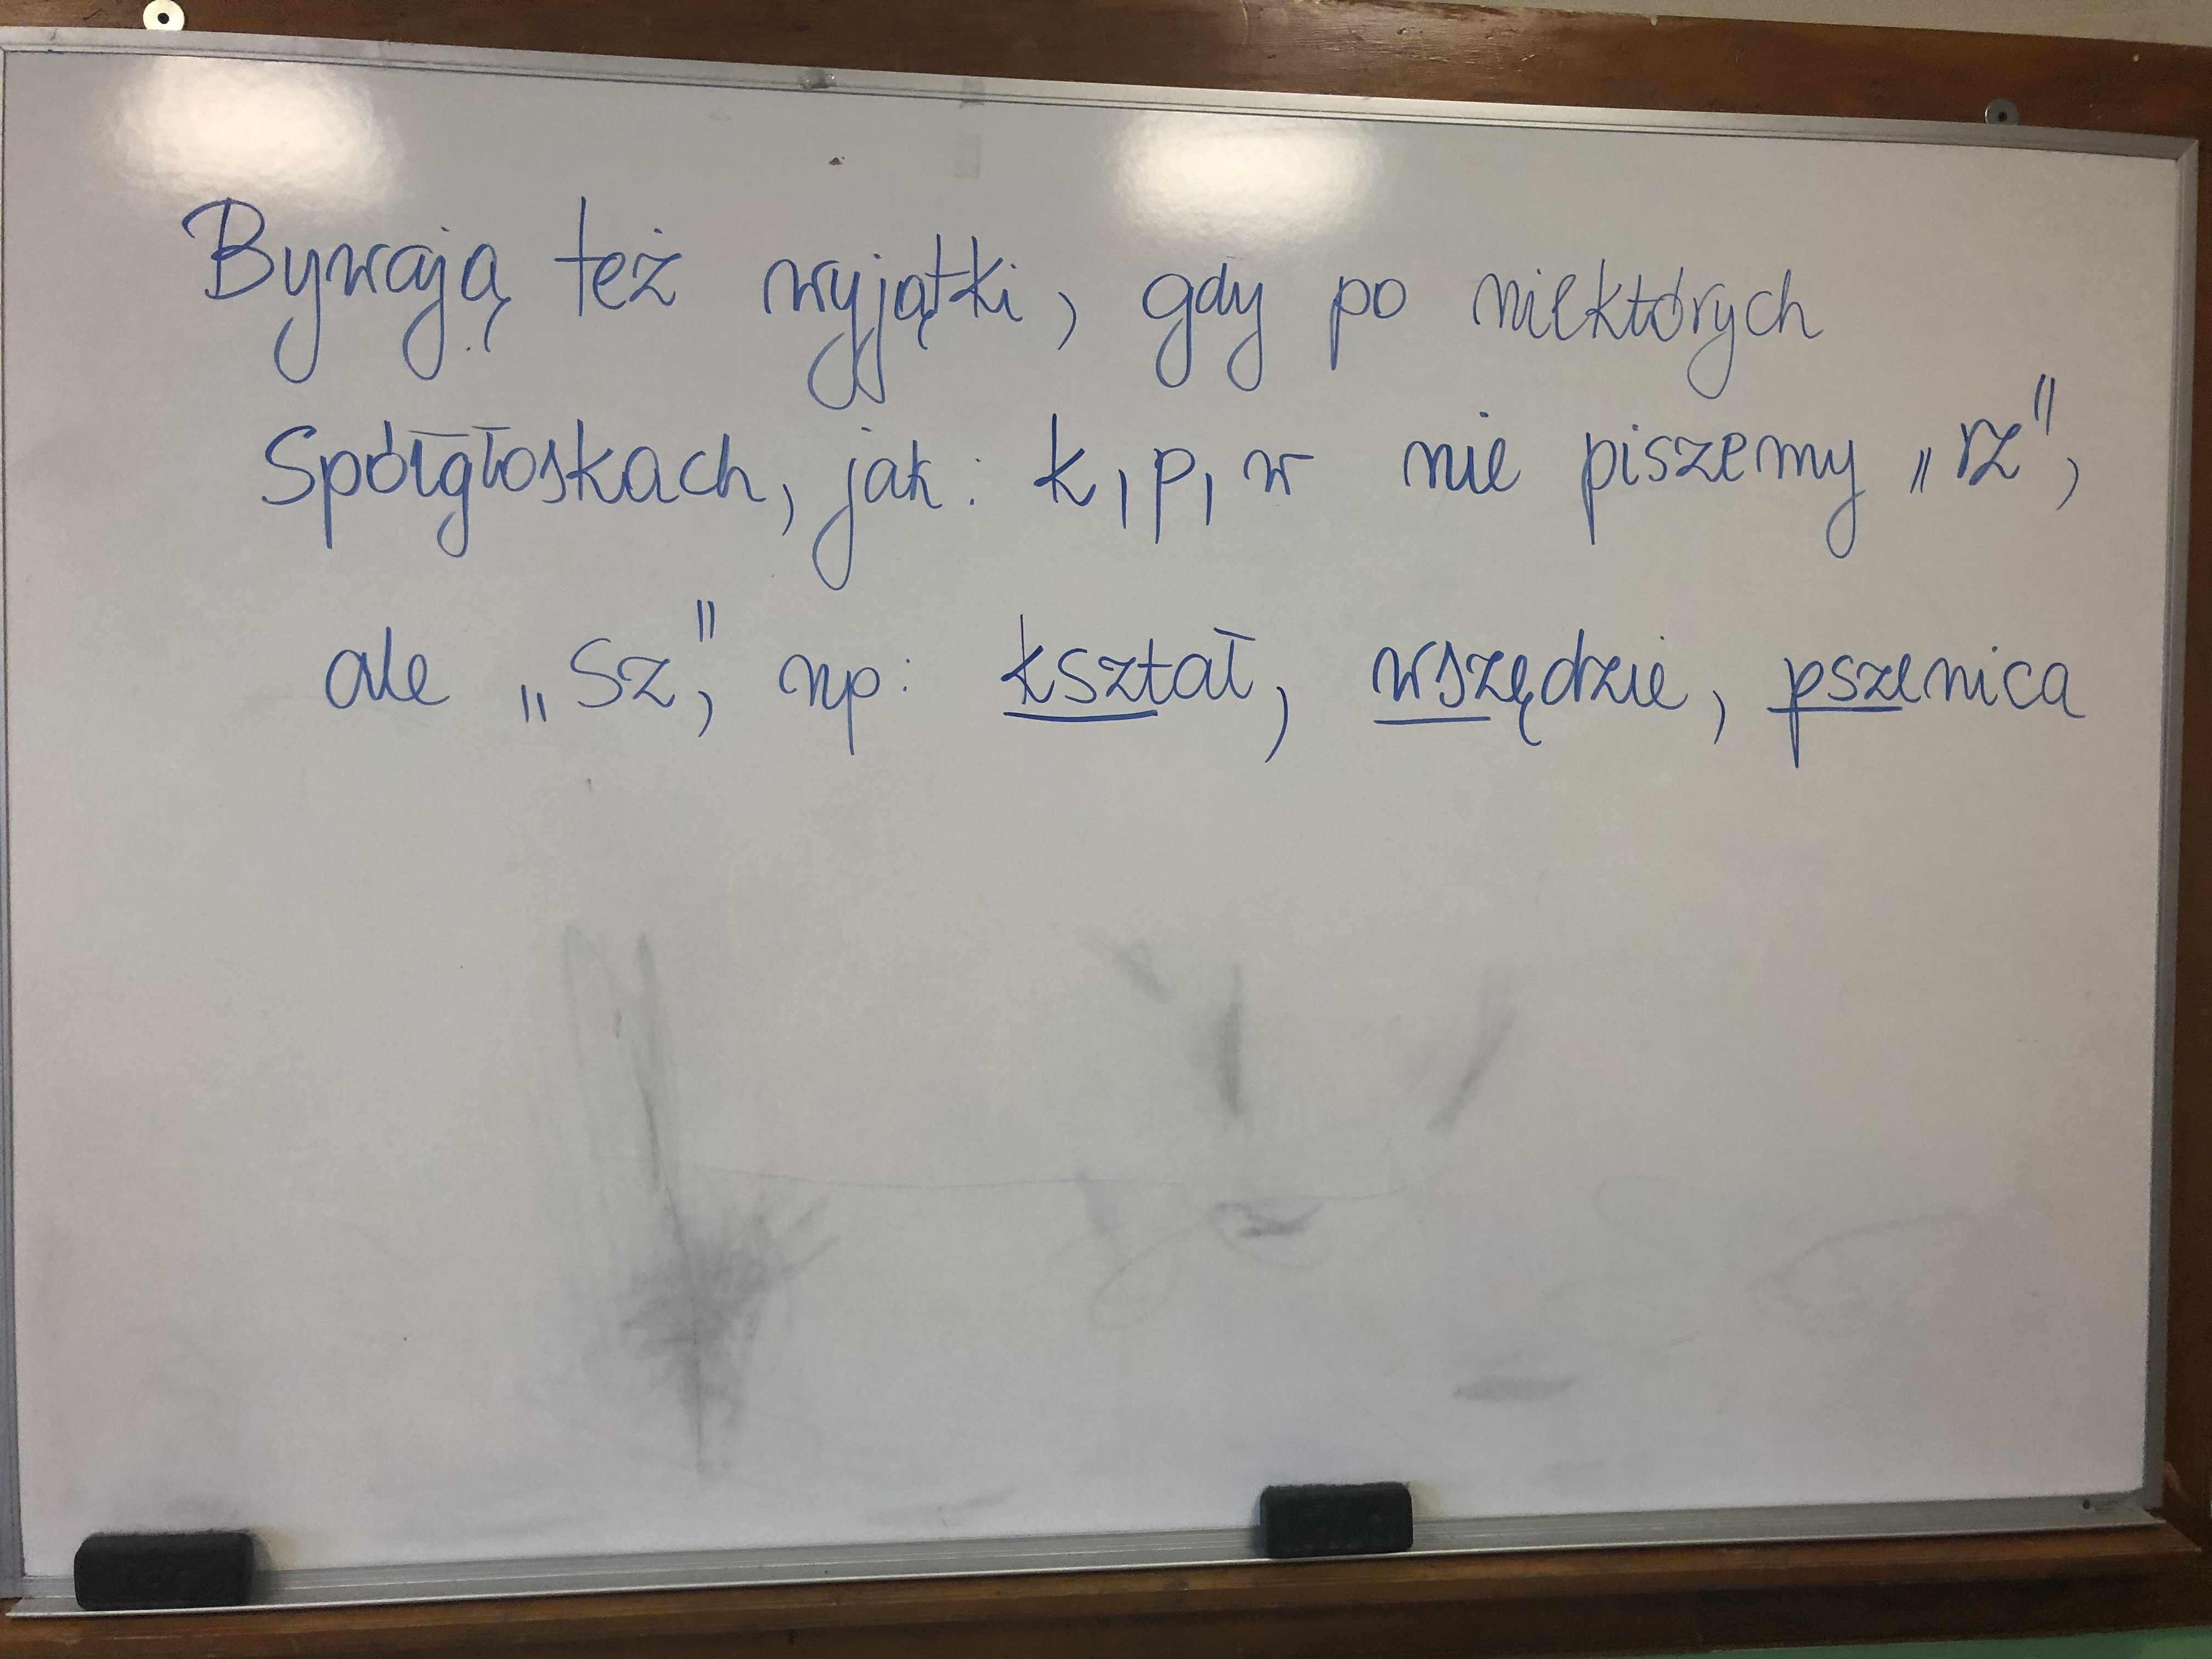 Bywają też wyjątki, gdy po niektórych
Spółgłoskach, jak: k, p, w nie piszemy „rz”,
ale „sz”, np: kształ, wszędzie, pszenica